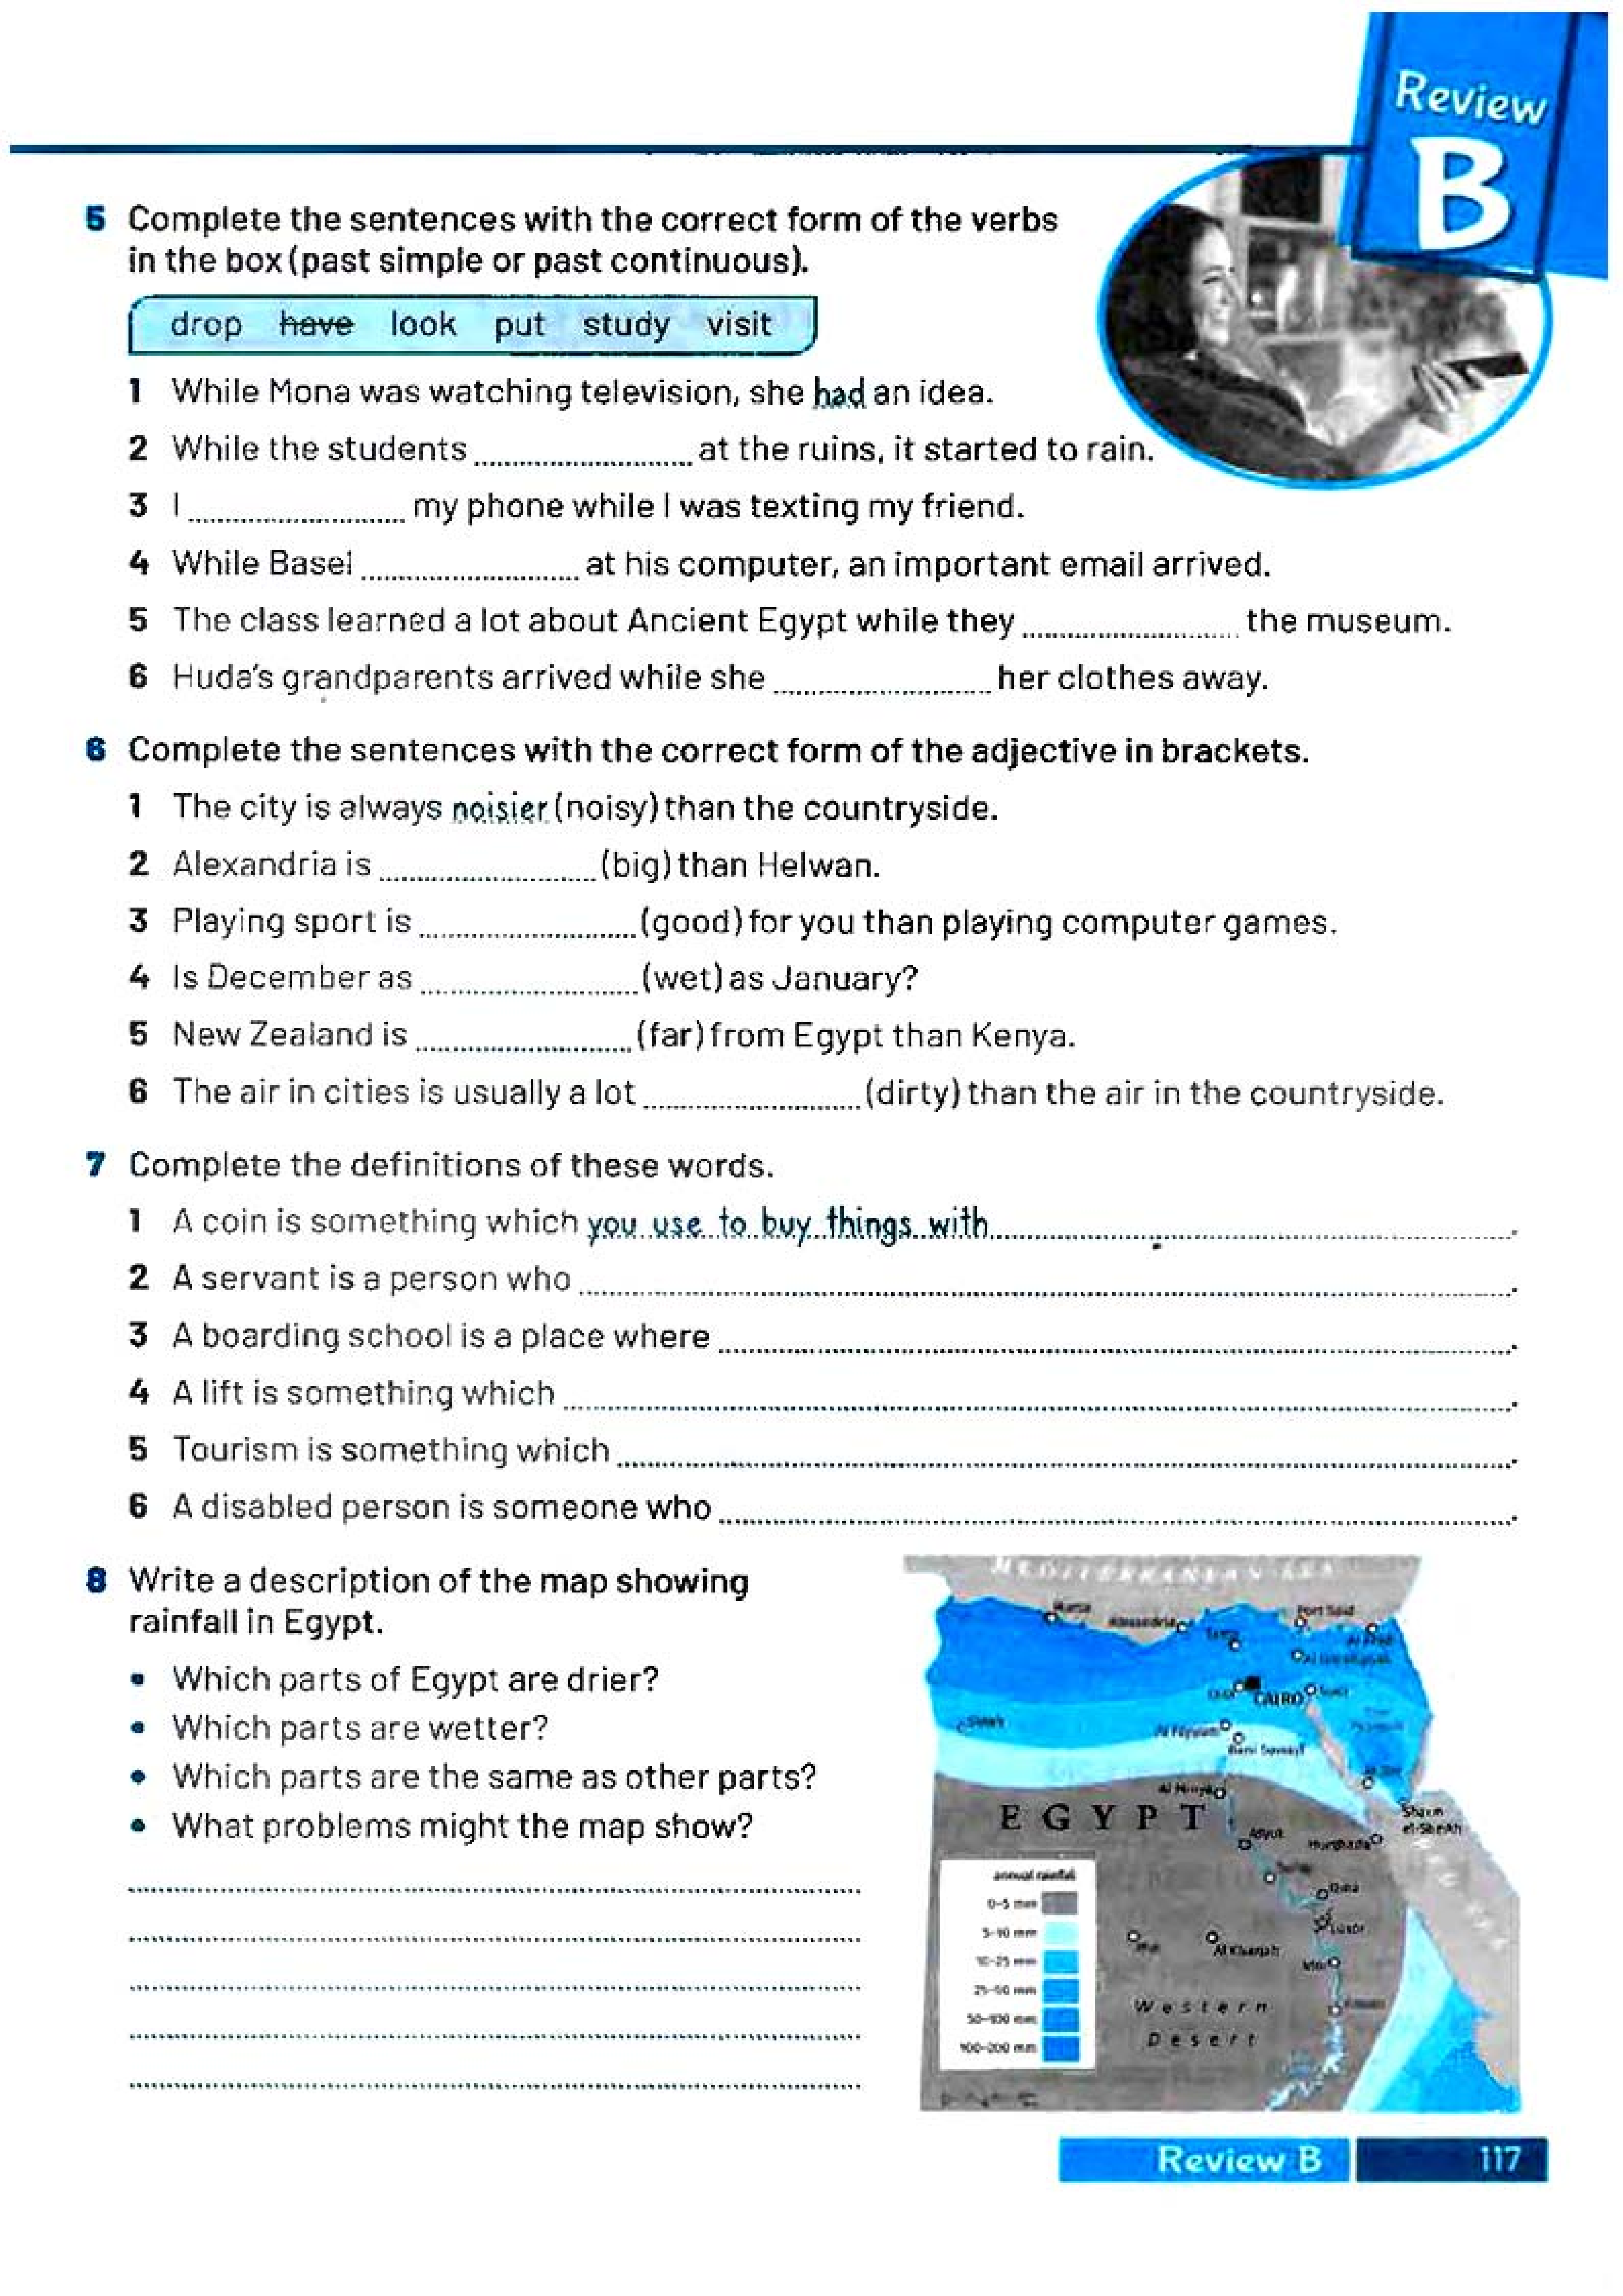 Review
B
5 Complete the sentences with the correct form of the verbs
in the box (past simple or past continuous).
drop have look put study visit
1 While Mona was watching television, she had an idea.
2 While the students ........................ at the ruins, it started to rain.
3 I ........................ my phone while I was texting my friend.
4 While Basel ........................ at his computer, an important email arrived.
5 The class learned a lot about Ancient Egypt while they ........................ the museum.
6 Huda's grandparents arrived while she ........................ her clothes away.
6 Complete the sentences with the correct form of the adjective in brackets.
1 The city is always noisier (noisy) than the countryside.
2 Alexandria is ........................ (big) than Helwan.
3 Playing sport is ........................ (good) for you than playing computer games.
4 Is December as ........................ (wet) as January?
5 New Zealand is ........................ (far) from Egypt than Kenya.
6 The air in cities is usually a lot ........................ (dirty) than the air in the countryside.
7 Complete the definitions of these words.
1 A coin is something which you use to buy things with ........................ .
2 A servant is a person who ........................ .
3 A boarding school is a place where ........................ .
4 A lift is something which ........................ .
5 Tourism is something which ........................ .
6 A disabled person is someone who ........................ .
8 Write a description of the map showing
rainfall in Egypt.
• Which parts of Egypt are drier?
• Which parts are wetter?
• Which parts are the same as other parts?
• What problems might the map show?
MEDITERRANEAN SEA
Port Said
Alexandria
CAIRO
Suez
Siwah
Al Fayyum
Beni Suwayf
Al Minya
EGYPT
Asyut
Hurghada
Sharm
el-Sheikh
Qina
Luxor
Al Kharijah
Western
Desert
annual rainfall
0-5 mm
5-10 mm
10-25 mm
25-50 mm
50-100 mm
100-200 mm
Review B 117